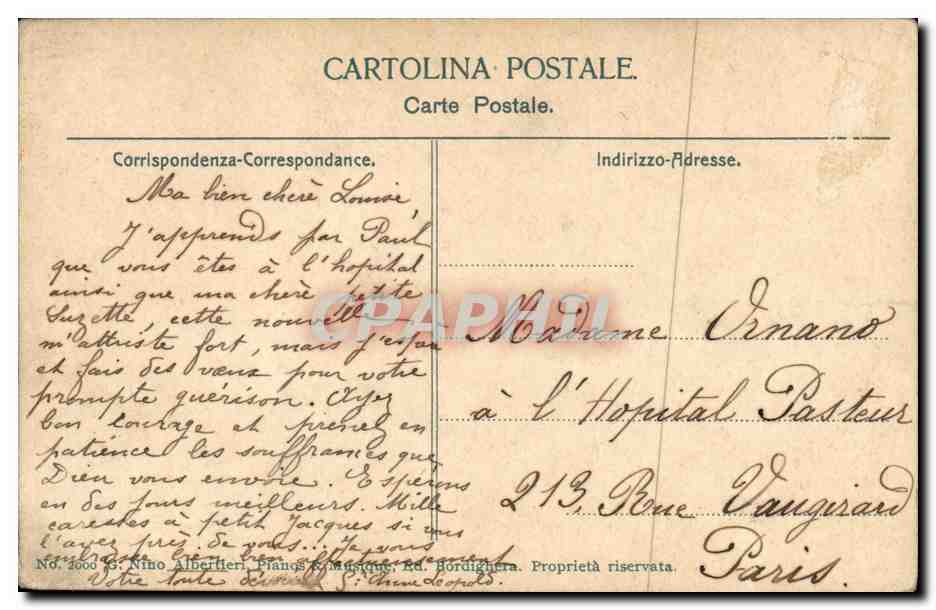 CARTOLINA POSTALE.
Carte Postale.
Corrispondenza-Correspondance.
Ma bien chère Louise,
J'apprends par Paul
que vous êtes à l'hopital
ainsi que ma chère petite
Suzette, cette nouvelle
m'attriste fort, mais j'espère
et fais des vœux pour votre
prompte guérison. Ayez
bon courage et prenez en
patience les souffrances que
Dieu vous envoie. Espérons
en des jours meilleurs. Mille
caresses à petit Jacques si vous
l'avez près de vous... Je vous
embrasse bien bien affectueusement
No. 2000 G. Nino Albertieri, Pianos & Musique, Ed. Bordighera. Proprietà riservata.
Votre toute Léopold.
Indirizzo-Adresse.
Madame Ornano
à l'Hopital Pasteur
213, Rue Vaugirard
Paris.
CPAPHIL